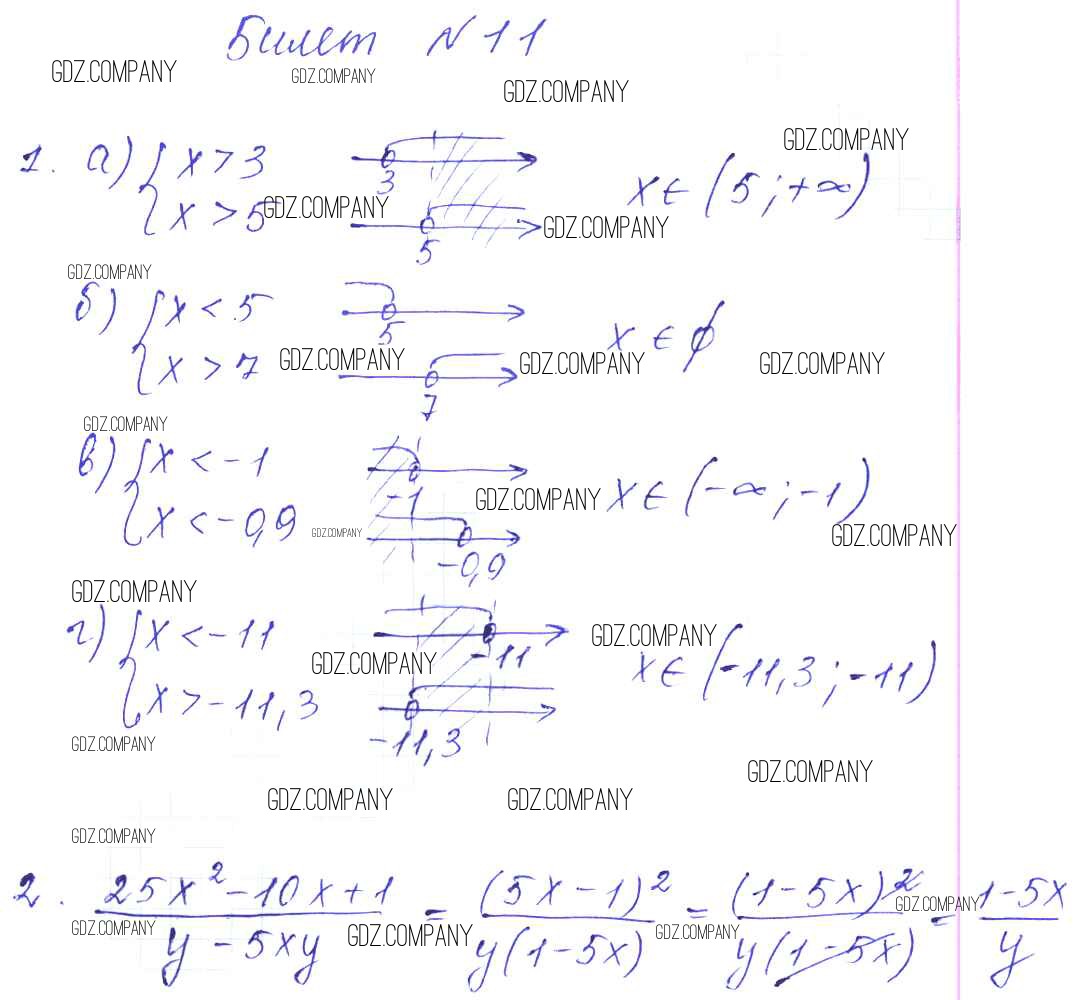 Билет №11
GDZ.COMPANY GDZ.COMPANY GDZ.COMPANY
GDZ.COMPANY
1. а) { x > 3 3
x > 5 5 x ∈ (5; +∞)
GDZ.COMPANY GDZ.COMPANY
GDZ.COMPANY
б) { x < 5 5
x > 7 7 x ∈ ∅
GDZ.COMPANY GDZ.COMPANY GDZ.COMPANY
GDZ.COMPANY
в) { x < -1 -1
x < -0,9 -0,9 x ∈ (-∞; -1)
GDZ.COMPANY GDZ.COMPANY GDZ.COMPANY
GDZ.COMPANY
г) { x < -11 -11
x > -11,3 -11,3 x ∈ (-11,3; -11)
GDZ.COMPANY GDZ.COMPANY
GDZ.COMPANY GDZ.COMPANY
GDZ.COMPANY GDZ.COMPANY
GDZ.COMPANY
2. (25x² - 10x + 1)/(y - 5xy) = (5x - 1)²/(y(1 - 5x)) = (1 - 5x)²/(y(1 - 5x)) = (1 - 5x)/y
GDZ.COMPANY GDZ.COMPANY GDZ.COMPANY GDZ.COMPANY